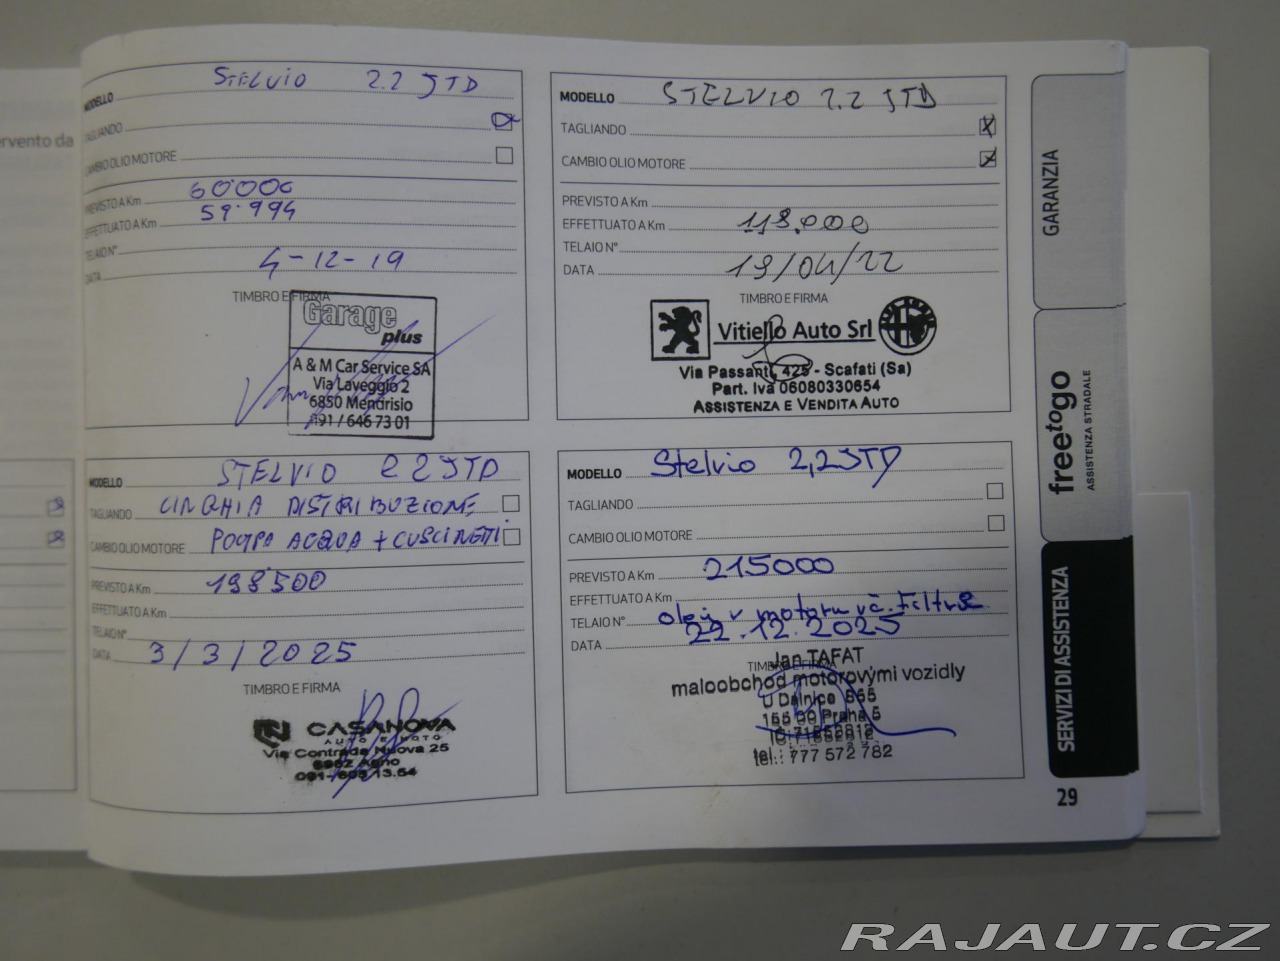 rvento da
MODELLO STELVIO 2.2 JTD
TAGLIANDO
CAMBIO OLIO MOTORE
PREVISTO A Km 60000
EFFETTUATO A Km 59.994
TELAIO N°
DATA 4-12-19
TIMBRO E FIRMA
Garage
plus
A & M Car Service SA
Via Laveggio 2
6850 Mendrisio
091 / 646 73 01
MODELLO STELVIO 2.2 JTD
TAGLIANDO
CAMBIO OLIO MOTORE
PREVISTO A Km
EFFETTUATO A Km 118.000
TELAIO N°
DATA 19/04/22
TIMBRO E FIRMA
Vitiello Auto Srl
Via Passanti, 425 - Scafati (Sa)
Part. Iva 06080330654
ASSISTENZA E VENDITA AUTO
MODELLO STELVIO 2 2 JTD
TAGLIANDO CINGHIA DISTRIBUZIONE
CAMBIO OLIO MOTORE POMPA ACQUA + CUSCINETTI
PREVISTO A Km 198'500
EFFETTUATO A Km
TELAIO N°
DATA 3/3/2025
TIMBRO E FIRMA
CASANOVA
AUTO E MOTO
Via Contrada Nuova 25
6982 Agno
MODELLO Stelvio 2,2 JTD
TAGLIANDO
CAMBIO OLIO MOTORE
PREVISTO A Km 215000
EFFETTUATO A Km
TELAIO N° olej v motoru vč. Filtru
DATA 22.12.2025
TIMBRO E FIRMA
Jan TAFAT
maloobchod motorovými vozidly
U Dálnice 865
155 00 Praha 5
tel.: 777 572 782
GARANZIA
freetogo
ASSISTENZA STRADALE
SERVIZI DI ASSISTENZA
29
RAJAUT.CZ